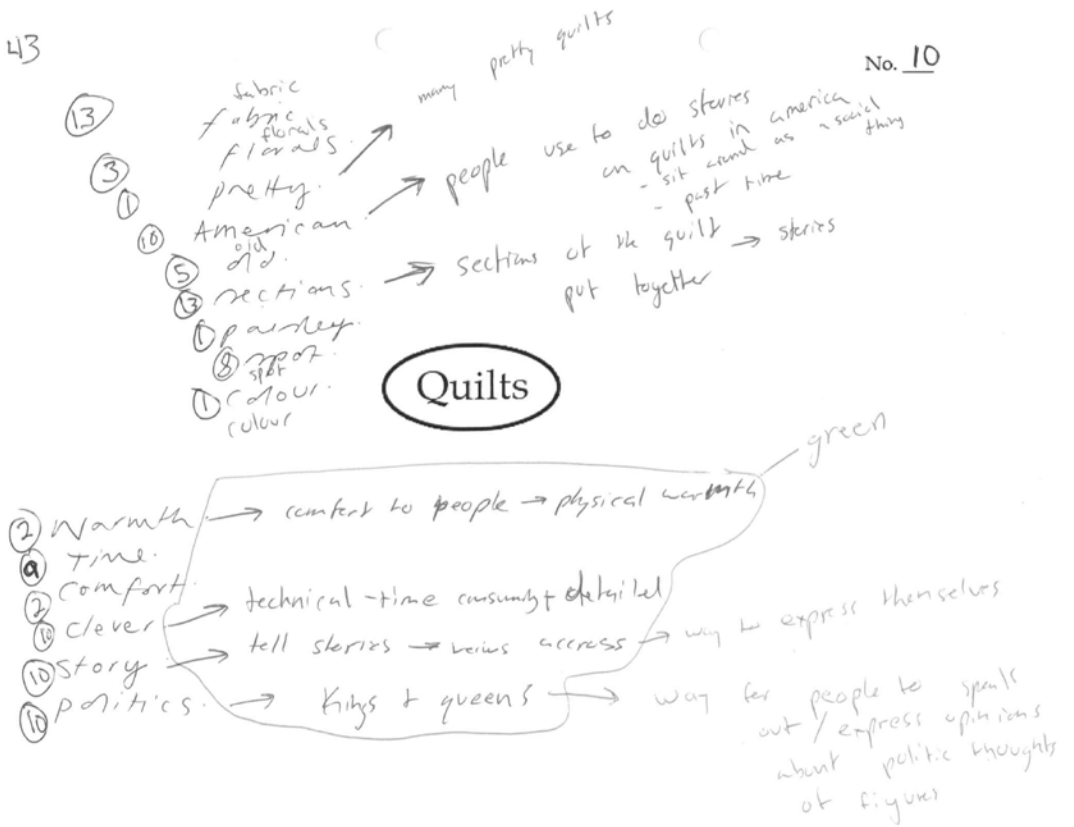 43
No. 10
13 fabric
fabric
florals
3 florals.
1 pretty. → many pretty quilts
10 American → people use to do stories
on quilts in america
- sit around as a social
thing
- past time
old
5 old.
13 sections. → sections of the quilt → stories
put together
1 paisley.
8 spot.
spot
1 colour.
colour
Quilts
green
2 Warmth → comfort to people → physical warmth
9 Time.
2 Comfort.
10 Clever → technical - time consuming + detailed
10 Story → tell stories → accross → way to express themselves
10 politics. → Kings + queens → way for people to speak
out / express opinions
about politic thoughts
of figures